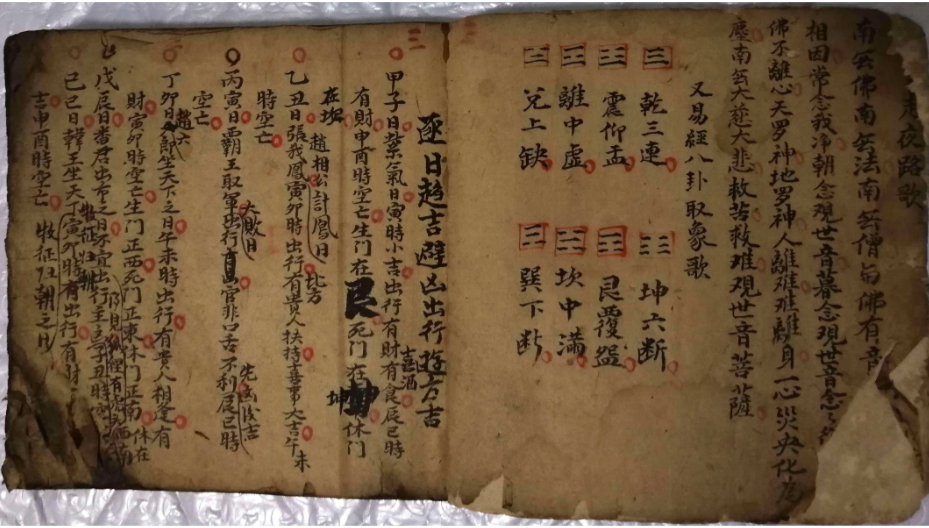 走夜路歌
南無佛南無法南無僧與佛有音
相因常念我净朝念观世音暮念观世音念念
佛不離心天罗神地罗神人離难难離身一心災央化為
塵南無大慈大悲救苦救难观世音菩薩
又易經八卦取象歌
☰ 乾三連 ☷ 坤六断
☳ 震仰盂 ☶ 艮覆盌
☲ 離中虚 ☵ 坎中滿
☱ 兑上缺 ☴ 巽下断
逐日趋吉避凶出行遊方吉
甲子日紫氣日寅時小吉出行有財有食辰巳時
喜酒
有財申酉時空亡生門在艮死門在坤休門
在坎
趙相公計鳳日 北方
乙丑日張我鳳寅夘時出行有貴人扶持喜事大吉午未
時空亡
大敗日 先凶後吉
丙寅日覇王取軍出行官非口舌不利辰巳時
空亡
趙六
丁夘日郎坐天下之日午未時出行有貴人相逢有
財寅夘時空亡生門正西死門正東休門正南休在
戊辰日番君出市之日不宜出行主子丑時空
牧征归朝
己巳日韓王坐天丁寅夘時有出行有財
吉申酉時空亡 牧征归朝之日